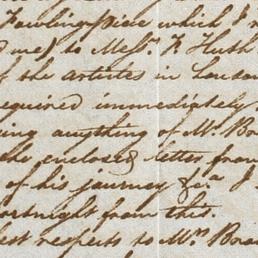 Fowling piece which I
me) to Messrs. F. Huth
of the articles in London
required immediately
anything of Mr. Bra
the enclosed letter from
of his journey &c.a I
fortnight from this.
est respects to Mrs. Bra